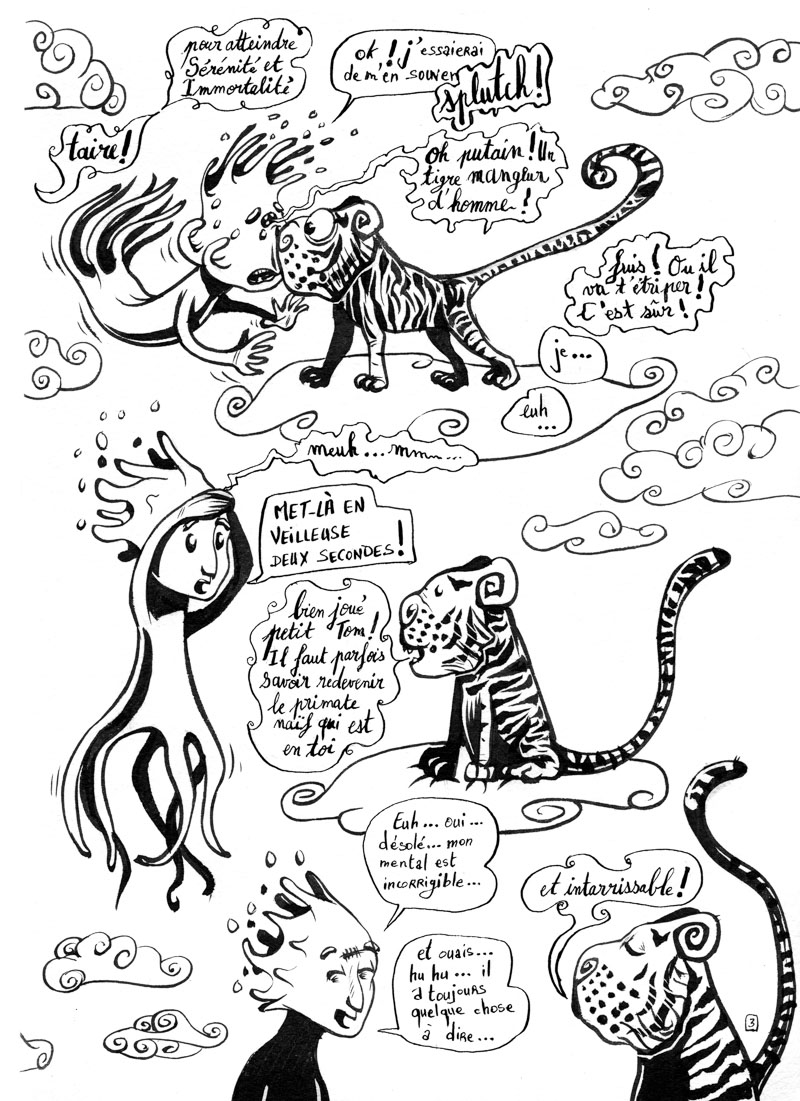 pour atteindre
Sérénité et
Immortalité
taire!
ok! j'essaierai
de m'en souven
splutch!
oh putain! Un
tigre mangeur
d'homme!
fuis! Ou il
va t'étriper!
C'est sûr!
je...
euh
...
meuh...mmm...
MET-LÀ EN
VEILLEUSE
DEUX SECONDES!
bien joué
petit Tom!
Il faut parfois
savoir redevenir
le primate
naïf qui est
en toi
Euh... oui...
désolé... mon
mental est
incorrigible...
et intarrissable!
et ouais...
hu hu... il
a toujours
quelque chose
à dire...
3